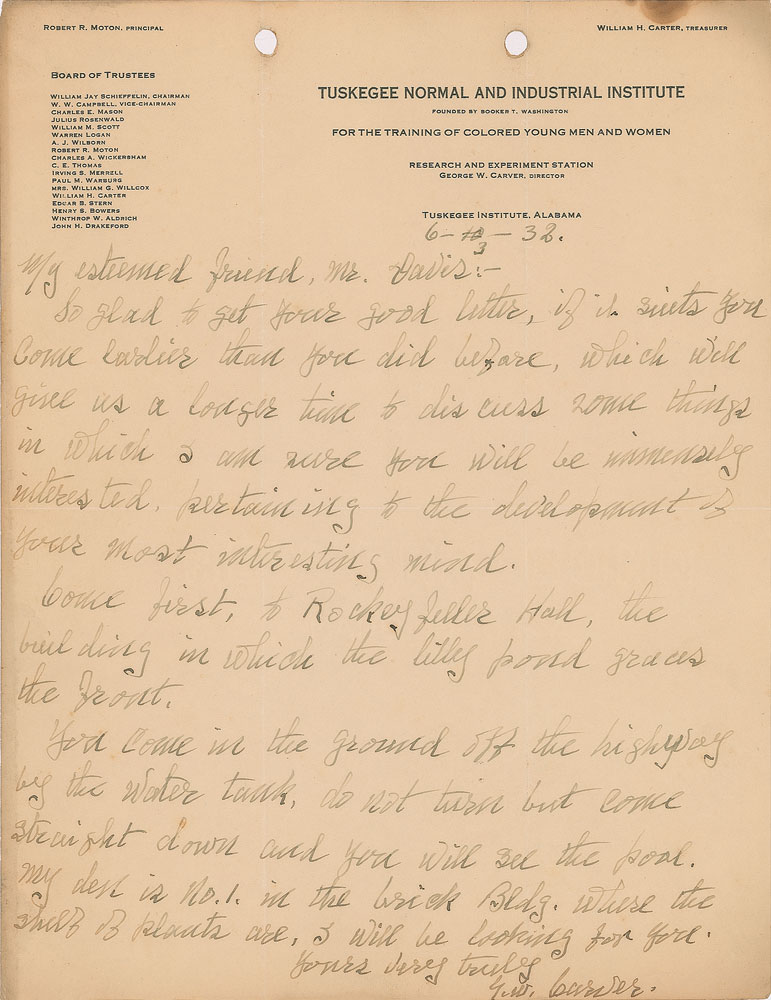 ROBERT R. MOTON, PRINCIPAL
WILLIAM H. CARTER, TREASURER
BOARD OF TRUSTEES
WILLIAM JAY SCHIEFFELIN, CHAIRMAN
W. W. CAMPBELL, VICE-CHAIRMAN
CHARLES E. MASON
JULIUS ROSENWALD
WILLIAM M. SCOTT
WARREN LOGAN
A. J. WILBORN
ROBERT R. MOTON
CHARLES A. WICKERSHAM
C. E. THOMAS
IRVING S. MERRELL
PAUL M. WARBURG
MRS. WILLIAM G. WILLCOX
WILLIAM H. CARTER
EDGAR B. STERN
HENRY S. BOWERS
WINTHROP W. ALDRICH
JOHN H. DRAKEFORD
TUSKEGEE NORMAL AND INDUSTRIAL INSTITUTE
FOUNDED BY BOOKER T. WASHINGTON
FOR THE TRAINING OF COLORED YOUNG MEN AND WOMEN
RESEARCH AND EXPERIMENT STATION
GEORGE W. CARVER, DIRECTOR
TUSKEGEE INSTITUTE, ALABAMA
6-3-32.
My esteemed friend, Mr. Davis:-
So glad to get your good letter, if it suits you
come earlier than you did before, which will
give us a longer time to discuss some things
in which I am sure you will be immensely
interested, pertaining to the development of
your most interesting mind.
Come first, to Rockeyfeller Hall, the
building in which the lilly pond graces
the front.
You come in the ground off the highway
by the water tank, do not turn but come
straight down and you will see the pool.
My den is No. 1. in the brick Bldg. where the
shelf of plants are, I will be looking for you.
Yours very truly
G. W. Carver.